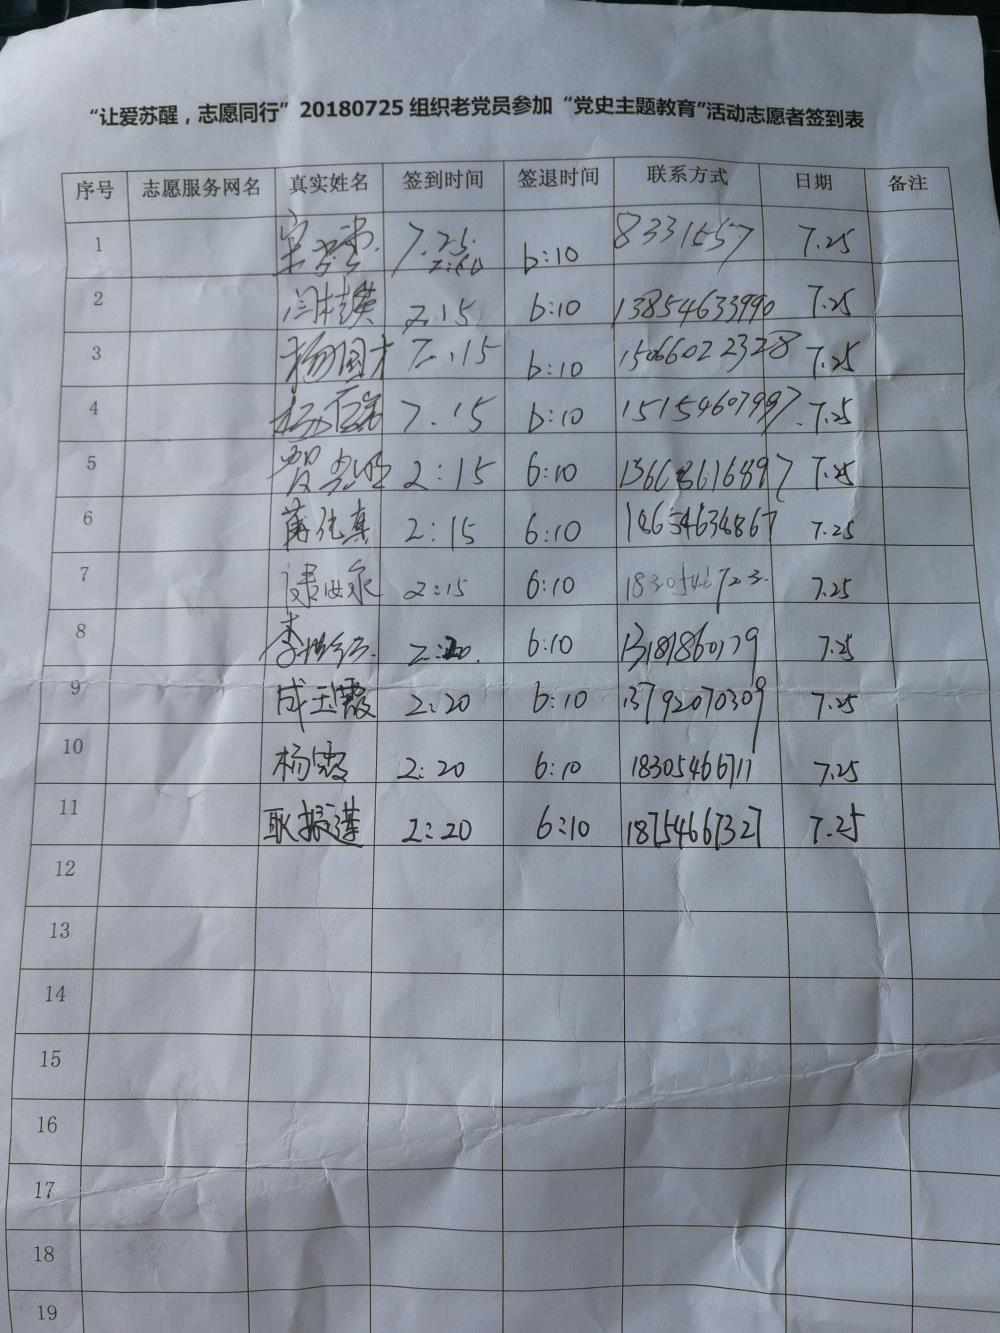 “让爱苏醒，志愿同行”20180725 组织老党员参加“党史主题教育”活动志愿者签到表
序号 志愿服务网名 真实姓名 签到时间 签退时间 联系方式 日期 备注
1 7.25. 2:10 6:10 8331557 7.25
2 闫桂英 2.15 6:10 13854633990 7.25
3 杨国才 2:15 6:10 15066022328 7.25
4 7.15 6:10 15154607997 7.25
5 2:15 6:10 7.25
6 蒲化真 2:15 6:10 18654634867 7.25
7 2:15 6:10 7.25
8 2:20. 6:10 13181860179 7.25
9 成玉霞 2:20 6:10 13792070309 7.25
10 杨霞 2:20 6:10 18305466711 7.25
11 耿振莲 2:20 6:10 18754667327 7.25
12
13
14
15
16
17
18
19